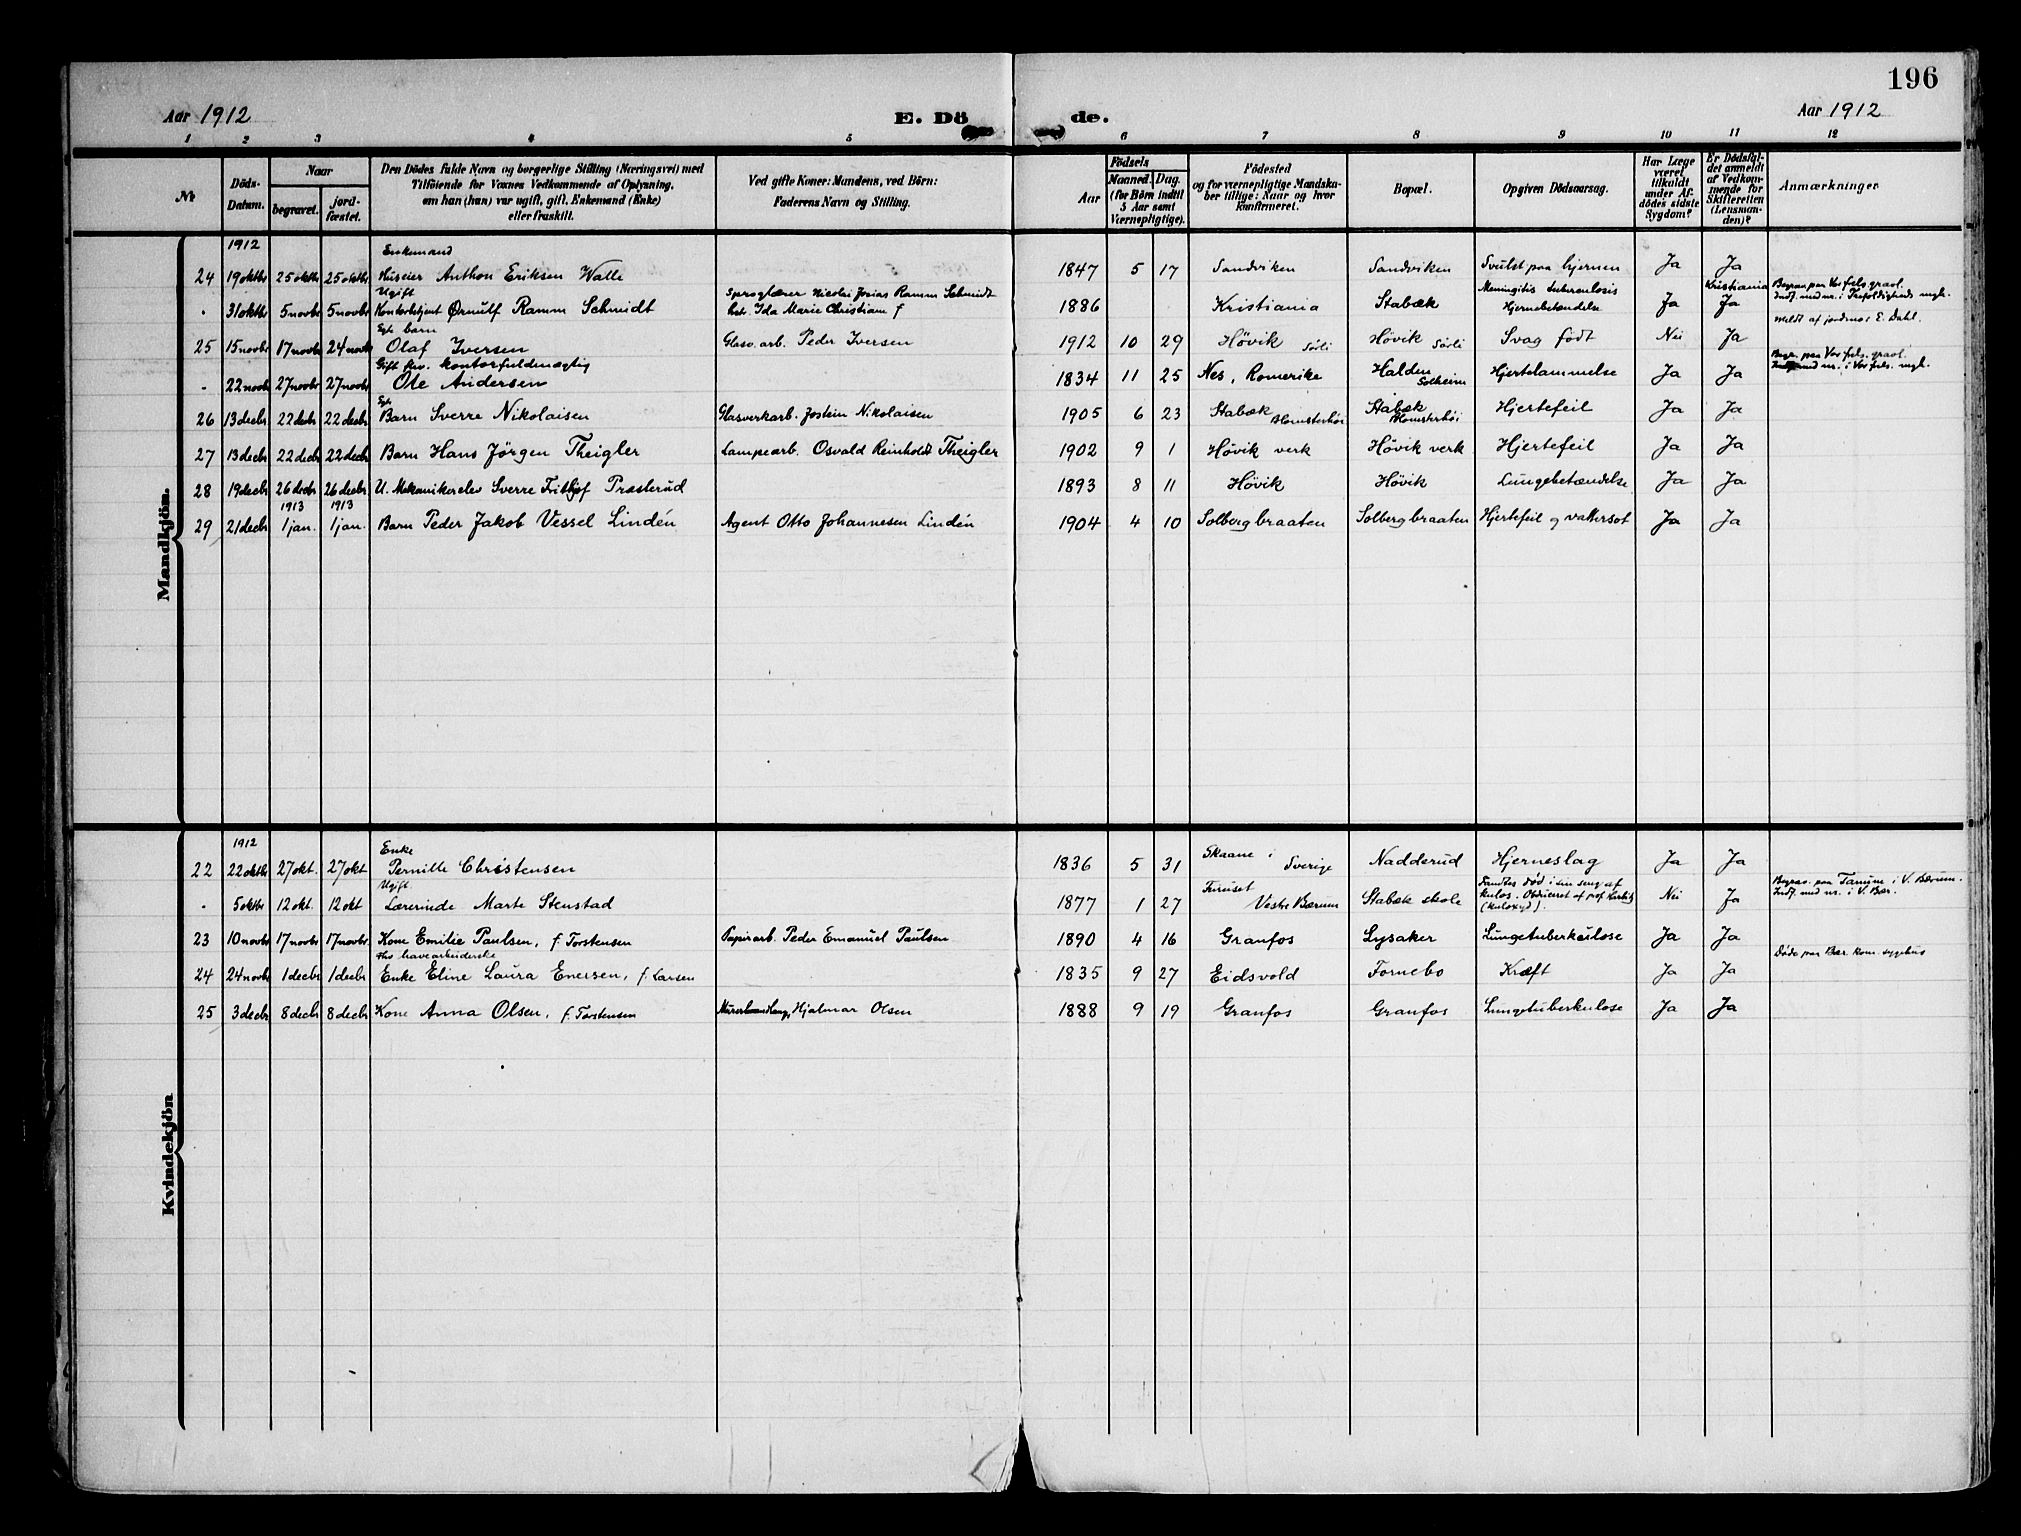 196
Aar 1912
E. Dö
de.
Aar 1912
1 2 3 4 5 6 7 8 9 10 11 12
№
Döds-
Datum.
Naar
begravet.
jord-
fæstet.
Den Dödes fulde Navn og borgerlige Stilling (Næringsvei) med
Tilföiende for Voxnes Vedkommende af Oplysning,
om han (hun) var ugift, gift, Enkemand (Enke)
eller fraskilt.
Ved gifte Koner: Mandens, ved Börn:
Faderens Navn og Stilling.
Aar
Födsels
Maaned. Dag.
(for Börn indtil
5 Aar samt
Værnepligtige).
Födested
og for værnepligtige Mandska-
ber tillige: Naar og hvor
konfirmeret.
Bopæl.
Opgiven Dödsaarsag.
Har Læge
været
tilkaldt
under Af-
dödes sidste
Sygdom?
Er Dödsfal-
det anmeldt
af Vedkom-
mende for
Skifteretten
(Lensman-
den)?
Anmærkninger
Mandkjön.
1912
Enkemand
24 19 oktbr 25 oktbr 25 oktbr Huseier Anthon Eriksen Walle 1847 5 17 Sandviken Sandviken Svulst paa hjernen Ja Ja
Ugift Sproglærer Nicolai Josias Ramm Schmidt Meningitis tuberculosis Kristiania Begrav. paa Vor frels gravl.
" 31 oktbr 5 novbr 5 novbr Kontorbetjent Ørnulf Ramm Schmidt hst. Ida Marie Christiane f 1886 Kristiania Stabæk Hjernebetændelse Ja Ja Indf. med nr. i Trefoldigheds mgl.
Egte barn Meldt af jordmor E. Dahl.
25 15 novbr 17 novbr 24 novbr Olaf Iversen Glasv. arb. Peder Iversen 1912 10 29 Høvik Sørli Høvik Sørli Svag født Nei Ja
Gift kontorfuldmægtig Begr. paa Vor frels. gravl.
" 22 novbr 27 novbr 27 novbr Ole Andersen 1834 11 25 Nes, Romerike Halden Solheim Hjertelammelse Ja Ja med nr. i Vor frels. mgl.
Egte
26 13 decbr 22 decbr 22 decbr Barn Sverre Nikolaisen Glasverkarb. Jostein Nikolaisen 1905 6 23 Stabæk Blomsterhøi Stabæk Blomsterhøi Hjertefeil Ja Ja
27 13 decbr 22 decbr 22 decbr Barn Hans Jörgen Theigler Lampearb. Osvald Reinholdt Theigler 1902 9 1 Høvik verk Høvik verk Hjertefeil Ja Ja
28 19 decbr 26 decbr 26 decbr U. Mekanikerelev Sverre Fritjof Præsterud 1893 8 11 Høvik Høvik Lungebetændelse Ja Ja
1913 1913
29 21 decbr 1 jan. 1 jan. Barn Peder Jakob Vessel Lindén Agent Otto Johannesen Lindén 1904 4 10 Solbergbraaten Solbergbraaten Hjertefeil og vattersot Ja Ja
Kvindekjön
1912
Enke
22 22 oktbr 27 okt. 27 okt Pernille Christensen 1836 5 31 Skaane i Sverige Nadderud Hjerneslag Ja Ja
Ugift Furuset Fandtes død i sin seng af Begrav. paa Tanum i V. Bærum.
" 5 oktbr 12 okt. 12 okt Lærerinde Marte Stenstad 1877 1 27 Vestre Bærum Stabæk skole kulos. Obduceret af prof. Nei Ja Indf. med nr. i V. Bær.
(kuloxyd).
23 10 novbr 17 novbr 17 novbr Kone Emilie Paulsen, f. Torstensen Papirarb. Peder Emanuel Paulsen 1890 4 16 Granfos Lysaker Lungetuberkulose Ja Ja
havearbeiderske Døde paa Bær. kom. sygehus
24 24 novbr 1 decbr 1 decbr Enke Eline Laura Enersen, f. Larsen 1835 9 27 Eidsvold Fornebo Kræft Ja Ja
25 3 decbr 8 decbr 8 decbr Kone Anna Olsen, f. Torstensen Murerhaandlang. Hjalmar Olsen 1888 9 19 Granfos Granfos Lungetuberkulose Ja Ja